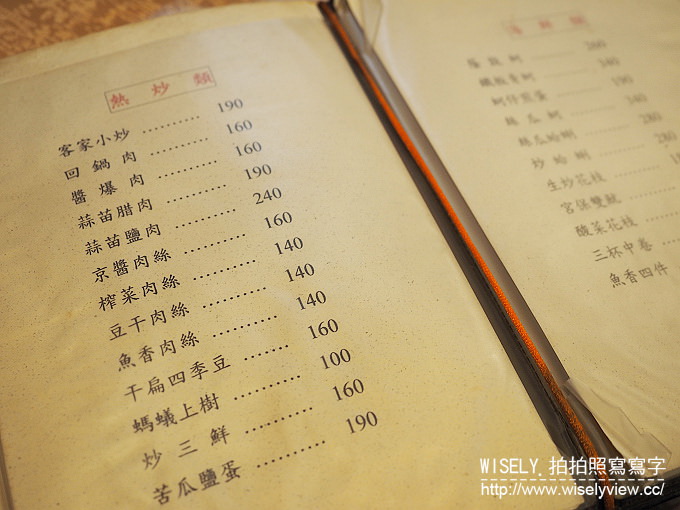 熱炒類
客家小炒 ………… 190
回鍋肉 ………… 160
醬爆肉 ………… 160
蒜苗腊肉 ………… 190
蒜苗鹽肉 ………… 240
京醬肉絲 ………… 160
榨菜肉絲 ………… 140
豆干肉絲 ………… 140
魚香肉絲 ………… 140
干扁四季豆 ………… 160
螞蟻上樹 ………… 100
炒三鮮 ………… 160
苦瓜鹽蛋 ………… 190
海鮮類
蔭豉蚵 …… 260
蚵仔煎蛋 …… 190
絲瓜蚵
絲瓜蛤蜊 …… 280
炒蛤蜊
生炒花枝
宮保雙魷
酸菜花枝
三杯中卷
魚香四件
WISELY 拍拍照寫寫字
http://www.wiselyview.cc/